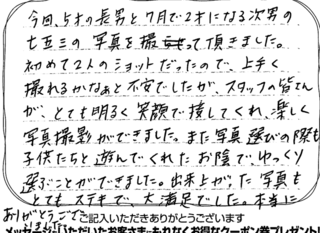 今回、5才の長男と7月で2才になる次男の
七五三の写真を撮って頂きました。
初めて2人のショットだったので、上手く
撮れるかなぁと不安でしたが、スタッフの皆さん
が、とても明るく笑顔で接してくれ、楽しく
写真撮影ができました。また写真選びの際も
子供たちと遊んでくれたお陰で、ゆっくり
選ぶことができました。出来上がった写真も
とてもステキで、大満足でした。本当に
ありがとうござ
記入いただきありがとうございます
いただいたお客さまにもれなくお得なクーポン券プレゼント!